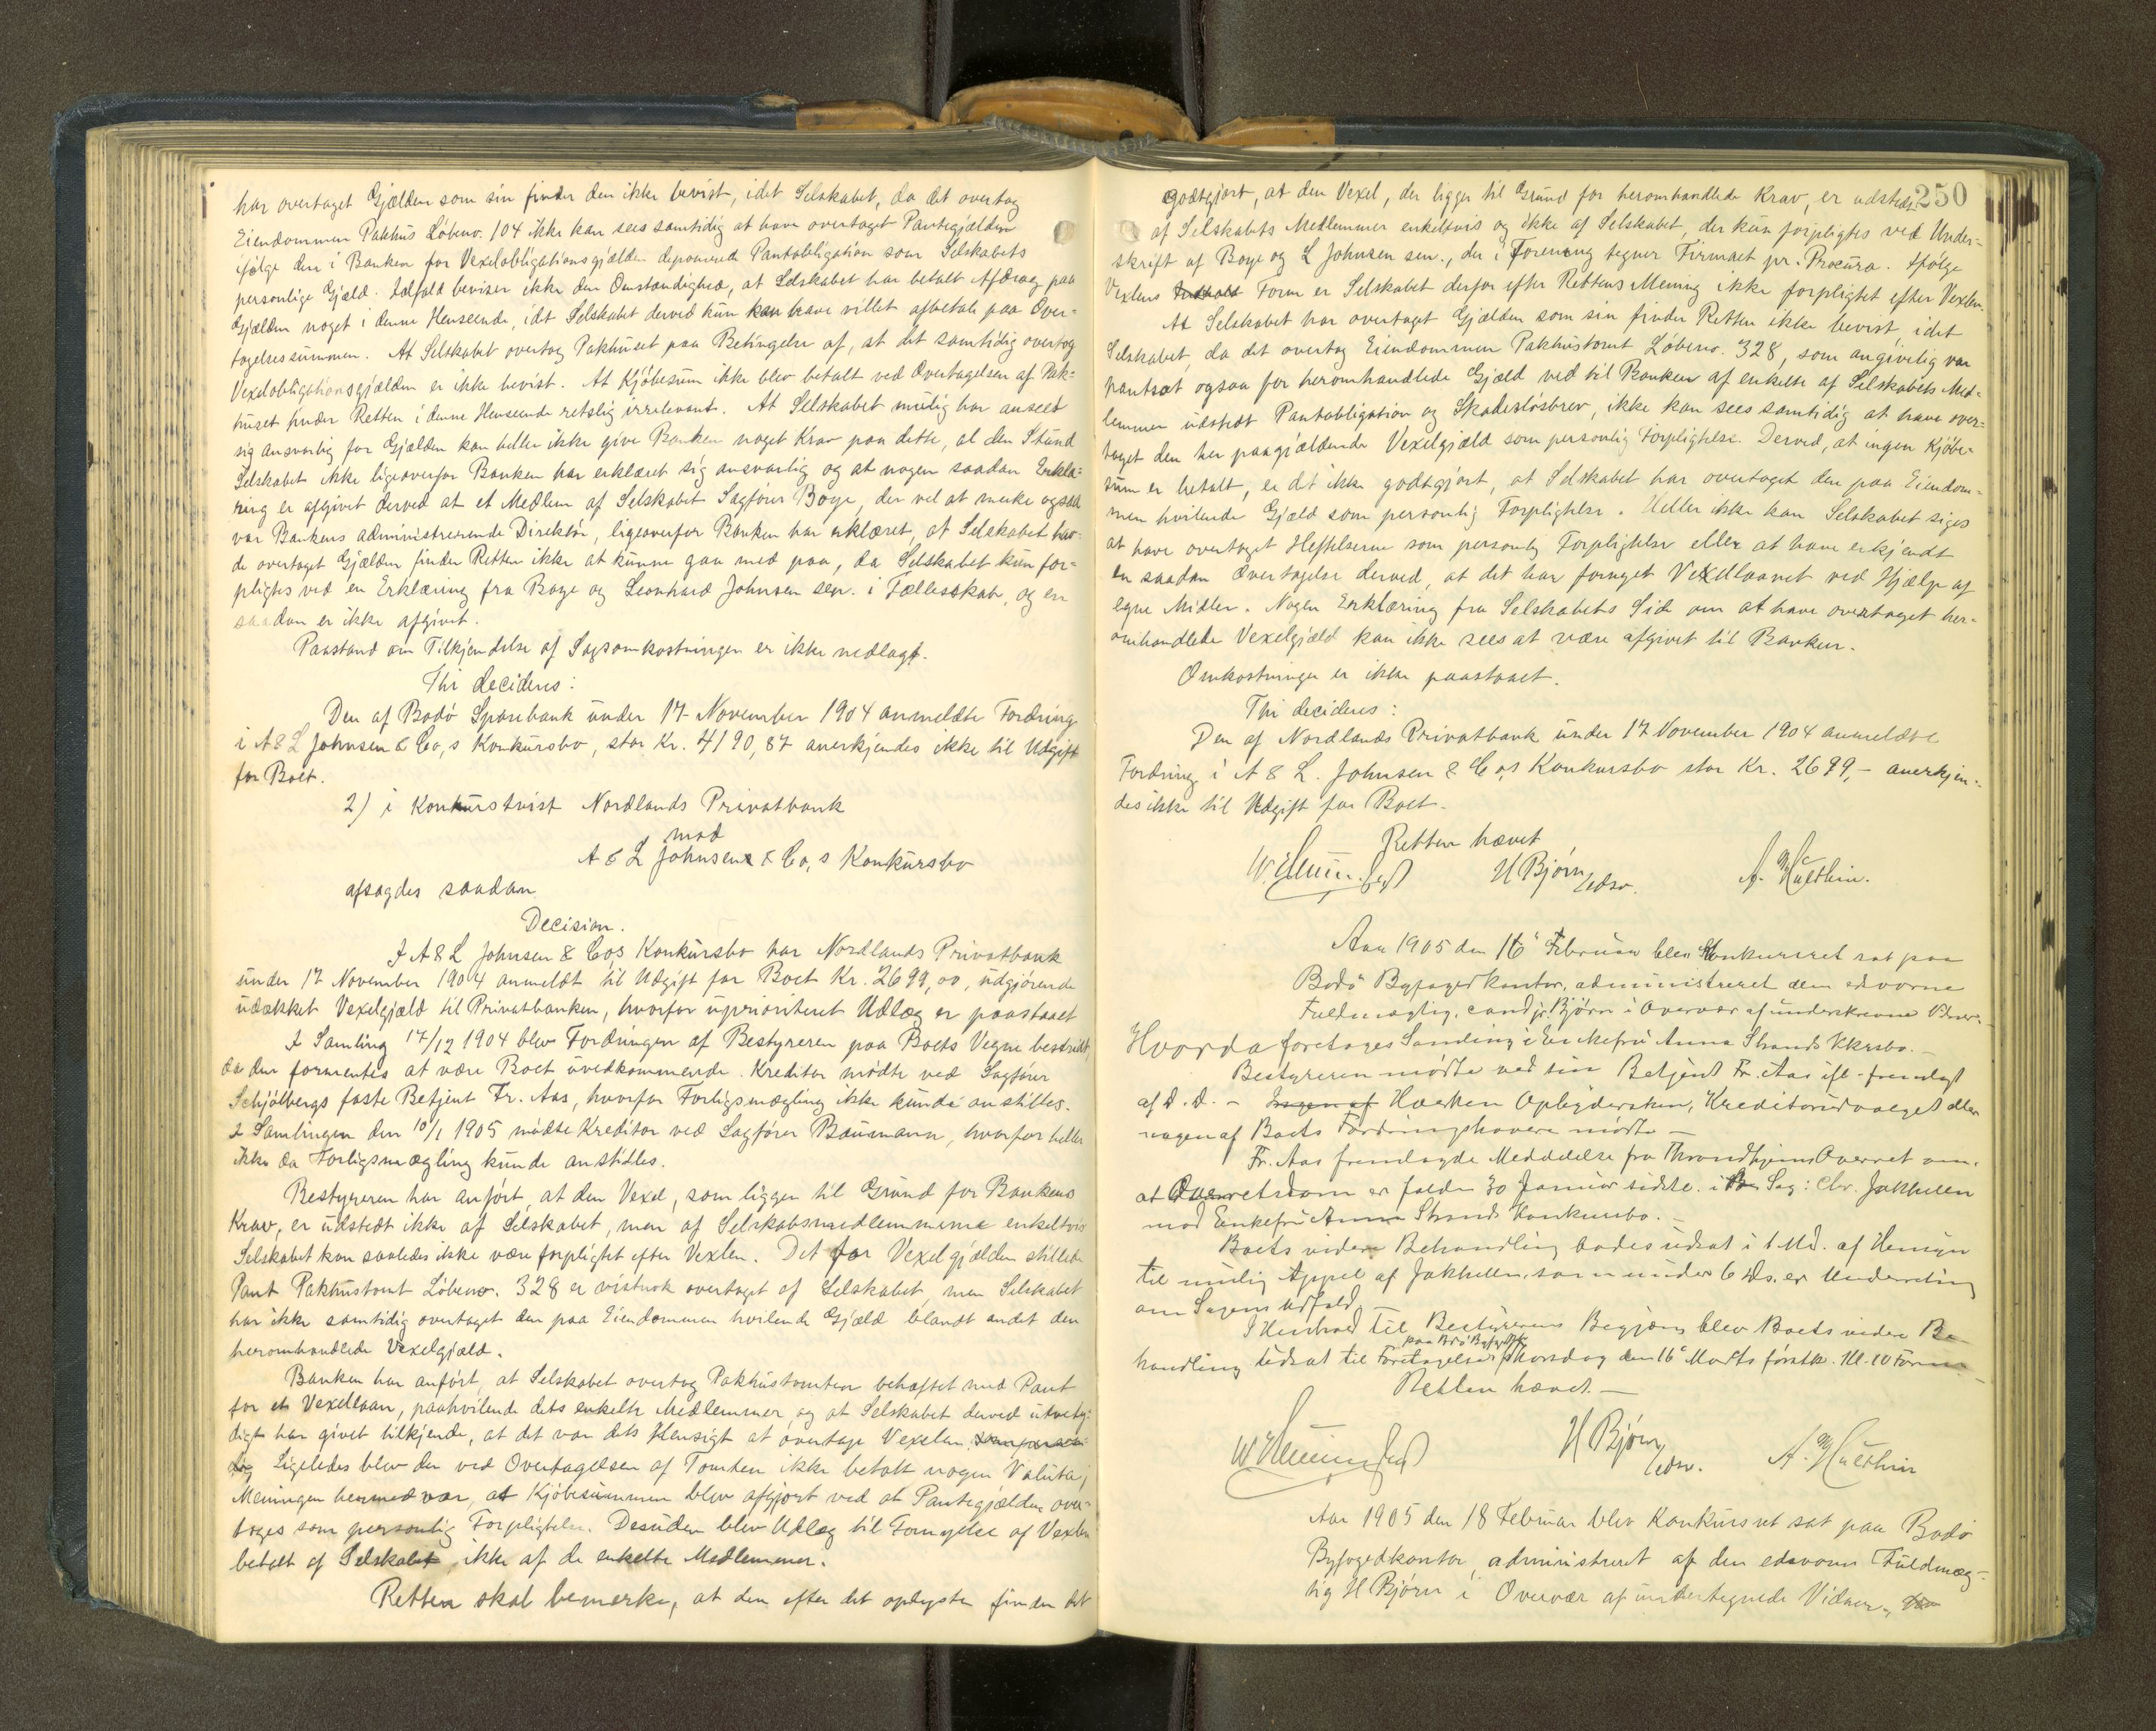 har overtaget Gjælden som sin finder den ikke bevist, idet Selskabet, da det overtog
Eiendommen Pakhus Löbeno. 104 ikke kan sees samtidig at have overtaget Pantegjælden
ifølge den i Banken for Vexelobligationsgjælden deponerede Pantobligation som Selskabets
personlige Gjæld. Ialfald beviser ikke den Omstændighed, at Selskabet har betalt Afdrag paa
Gjælden noget i denne Henseende, idet Selskabet derved kun kan have villet afbetale paa Over-
tagelsessummen. At Selskabet overtog Pakhuset paa Betingelse af, at det samtidig overtog
Vexelobligationsgjælden er ikke bevist. At Kjöbesum ikke blev betalt ved Overtagelsen af Pak-
huset finder Retten i denne Henseende retslig irrelevant. At Selskabet mulig har anseet
sig ansvarlig for Gjælden kan heller ikke give Banken noget Krav paa dette, al den Stund
Selskabet ikke ligeoverfor Banken har erklæret sig ansvarlig og at nogen saadan Erklæ-
ring er afgivet derved at et Medlem af Selskabet Sagförer Boye, der vel at merke ogsaa
var Bankens administrerende Direktör, ligeoverfor Banken har erklæret, at Selskabet hav-
de overtaget Gjælden finder Retten ikke at kunne gaa med paa, da Selskabet kun for-
pligtes ved en Erklæring fra Boye og Leonhard Johnsen sen. i Fællesskab, og en
saadan er ikke afgivet.
Paastand om Tilkjendelse af Sagsomkostninger er ikke nedlagt.
Thi decideres:
Den af Bodö Sparebank under 17 November 1904 anmeldte Fordring
i A & L Johnsen & Co,s Konkursbo, stor Kr. 4190,87 anerkjendes ikke til Udgift
for Boet.
2) i Konkurstvist Nordlands Privatbank
mod
A & L Johnsen & Co,s Konkursbo
afsagdes saadan
Decision.
I A & L Johnsen & Cos Konkursbo har Nordlands Privatbank
under 17 November 1904 anmeldt til Udgift for Boet Kr. 2699,00, udgjörende
udækket Vexelgjæld til Privatbanken, hvorfor uprioriteret Udlæg er paastaaet
I Samling 17/12 1904 blev Fordringen af Bestyreren paa Boets Vegne bestridt,
da den formentes at være Boet uvedkommende. Kreditor mödte ved Sagförer
Schjölbergs faste Betjent Fr. Aas, hvorfor Forligsmægling ikke kunde anstilles.
I Samlingen den 10/1 1905 mødte Kreditor ved Sagförer Bausmann, hvorfor heller
ikke da Forligsmægling kunde anstilles.
Bestyreren har anfört, at den Vexel, som ligger til Grund for Bankens
Krav, er udstedt ikke af Selskabet, men af Selskabsmedlemmerne enkeltvis
Selskabet kan saaledes ikke være forpligtet efter Vexlen. Det for Vexelgjælden stillede
Pant Pakhustomt Löbeno. 328 er vistnok overtaget af Selskabet, men Selskabet
har ikke samtidig overtaget den paa Eiendommen hvilende Gjæld blandt andet den
heromhandlede Vexelgjæld.
Banken har anfört, at Selskabet overtog Pakhustomten behæftet med Pant
for et Vexellaan, paahvilende dets enkelte Medlemmer, og at Selskabet derved utvety-
digt har givet tilkjende, at det var dets Hensigt at overtage Vexelen
Ligeledes blev der ved Overtagelsen af Tomten ikke betalt nogen Valuta;
Meningen hermed var, at Kjöbesummen blev afgjort ved at Pantegjælden over-
toges som personlig Forpligtelse. Desuden blev Udlæg til Fornyelse af Vexlen
betalt af Selskabet, ikke af de enkelte Medlemmer.
Retten skal bemerke, at den efter det oplyste finder det
250
godtgjort, at den Vexel, der ligger til Grund for heromhandlede Krav, er udstedt
af Selskabets Medlemmer enkeltvis og ikke af Selskabet, der kun forpligtes ved Under-
skrift af Boye og L Johnsen sen., der i Forening tegner Firmaet pr. Procura. Ifølge
Vexlens Indhold Form er Selskabet derfor efter Rettens Mening ikke forpligtet efter Vexlen.
At Selskabet har overtaget Gjælden som sin finder Retten ikke bevist, idet
Selskabet, da det overtog Eiendommen Pakhustomt Löbeno. 328, som angivelig var
pantsat ogsaa for heromhandlede Gjæld ved til Banken af enkelte af Selskabets Med-
lemmer udstedt Pantobligation og Skadeslösbrev, ikke kan sees samtidig at have over-
taget den her paagjældende Vexelgjæld som personlig Forpligtelse. Derved, at ingen Kjöbe-
sum er betalt, er det ikke godtgjort, at Selskabet har overtaget den paa Eiendom-
men hvilende Gjæld som personlig Forpligtelse. Heller ikke kan Selskabet siges
at have overtaget Heftelserne som personlig Forpligtelse eller at have erkjendt
en saadan Overtagelse derved, at det har fornyet Vexellaanet ved Hjælp af
egne Midler. Nogen Erklæring fra Selskabets Side om at have overtaget her-
omhandlede Vexelgjæld kan ikke sees at være afgivet til Banken.
Omkostninger er ikke paastaaet.
Thi decideres:
Den af Nordlands Privatbank under 17 November 1904 anmeldte
Fordring i A & L. Johnsen & Co,s Konkursbo stor Kr. 2699,- anerkjen-
des ikke til Udgift for Boet.
Retten hævet
H Bjørn
edsv.
Aar 1905 den 16 Februar blev Konkursret sat paa
Bodö Byfogedkontor, administreret den edsvorne
Fuldmægtig, cand jr. Bjørn i Overvær af underskrevne
Hvorda foretoges Samling i Enkefru Anna Strands Kkrsbo.
Bestyreren mødte ved sin Betjent Fr. Aas ifl. fremlagt
af D. D. - Hverken Opbydersken, Kreditorudvalget eller
nogen af Boets Fordringshavere mødte -
Fr. Aas fremlagde Meddelelse fra Throndhjems Overret om,
at Overretsdom er falden 30 Januar sidstl. i Sag: Chr. Jakhelln
mod Enkefru Anna Strands Konkursbo.
Boets videre Behandling bades udsat i 1 Md. af Hensyn
til mulig Appel af Jakhelln, som under 6 ds. er Underretning
om Sagens Udfald
I Henhold til Bestyrerens Begjæring blev Boets videre Be-
handling udsat til Foretagelse Thorsdag den 16 Marts førstk. Kl. 10 Form
Retten hævet. -
H Bjørn
edsv.
Aar 1905 den 18 Februar blev Konkursret sat paa Bodö
Byfogedkontor, administreret af den edsvorne Fuldmæg-
tig H Bjørn i Overvær af undertegnede Vidner,